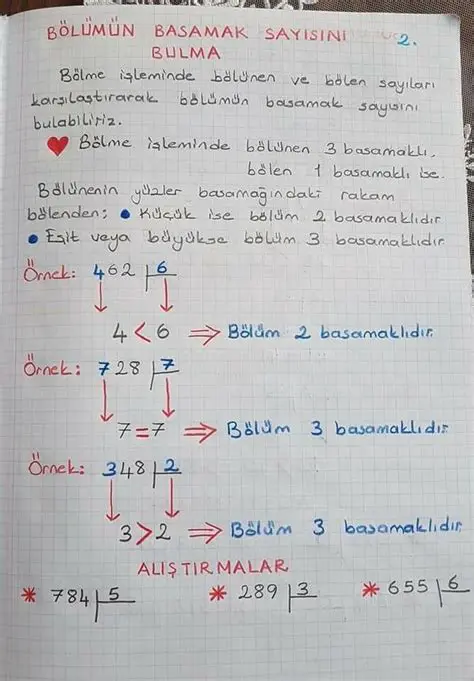 BÖLÜMÜN BASAMAK SAYISINI 2.
BULMA
Bölme işleminde bölünen ve bölen sayıları
karşılaştırarak bölümün basamak sayısını
bulabiliriz.
Bölme işleminde bölünen 3 basamaklı,
bölen 1 basamaklı ise.
Bölünenin yüzler basamağındaki rakam
bölenden; • Küçük ise bölüm 2 basamaklıdır
• Eşit veya büyükse bölüm 3 basamaklıdır
Örnek: 462 6
4 < 6 ⇒ Bölüm 2 basamaklıdır.
Örnek: 728 7
7 = 7 ⇒ Bölüm 3 basamaklıdır
Örnek: 348 2
3 > 2 ⇒ Bölüm 3 basamaklıdır.
ALIŞTIRMALAR
* 784 5 * 289 3 * 655 6